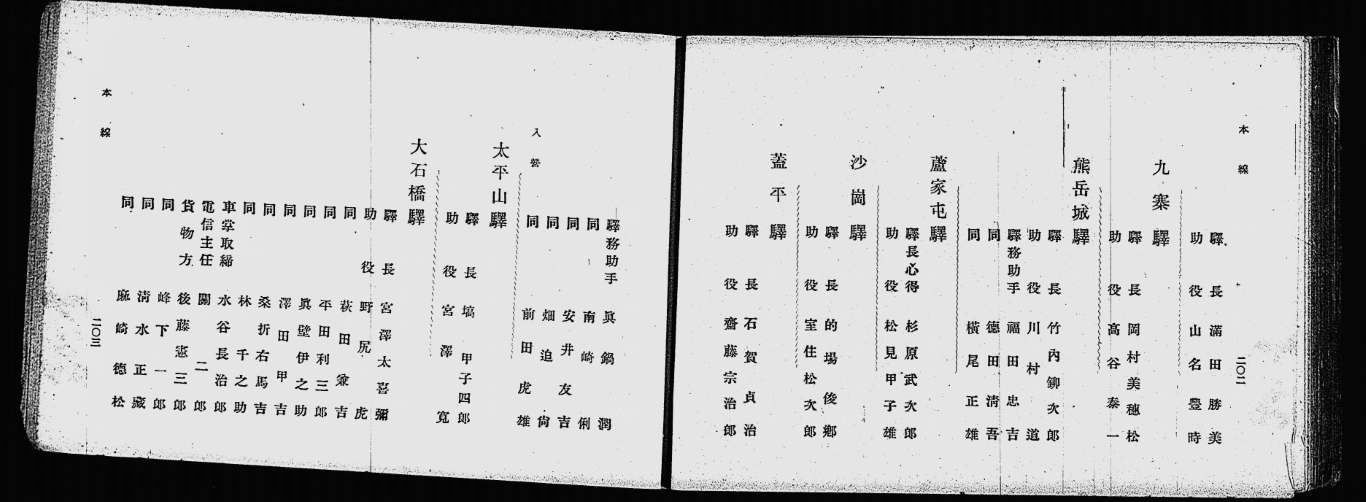 本線
驛長 滿田勝美
助役 山名豊時
九寨驛
驛長 岡村美穗松
助役 髙谷泰一
熊岳城驛
驛長 竹內鉚次郎
助役 川村道
驛務助手 福田忠吉
同 德田淸吾
同 橫尾正雄
蘆家屯驛
驛長心得 杉原武次郎
助役 松見甲子雄
沙崗驛
驛長 的場俊鄕
助役 室住松次郎
蓋平驛
驛長 石賀貞治
助役 齋藤宗治郎
二〇二
驛務助手 眞鍋潤
同 南崎俐
同 安井友吉
同 畑迫尙
入營 同 前田虎雄
太平山驛
驛長 塙甲子四郎
助役 宮澤寬
大石橋驛
驛長 宮澤太喜彌
助役 野尻虎
同 萩田金吉
同 平田利三郎
同 眞壁伊之助
同 澤田甲吉
同 桑折右馬吉
同 林千之助
車掌取締 水谷長治郎
電信主任 關二郎
貨物方 後藤憲三郎
同 峰下一郎
同 淸水正藏
同 麻崎德松
本線
二〇三